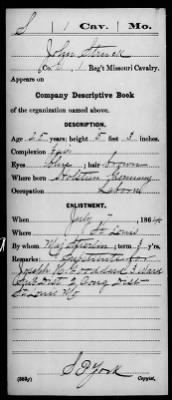 S | 1 | Cav. | Mo.
John Struck
Co. , 1 Reg't Missouri Cavalry.
Appears on
Company Descriptive Book
of the organization named above.
DESCRIPTION.
Age 25 years; height 5 feet 3 inches.
Complexion Fair
Eyes blue; hair brown
Where born Holstein Germany
Occupation Laborer
ENLISTMENT.
When July 7, 1864
Where St Louis
By whom Maj ; term 3 y'rs.
Remarks: Substitute for
Joseph H. Goddard 3 Ward
Sub Dist 2 Cong Dist
St Louis Mo
S D York
(383g) Copyist.